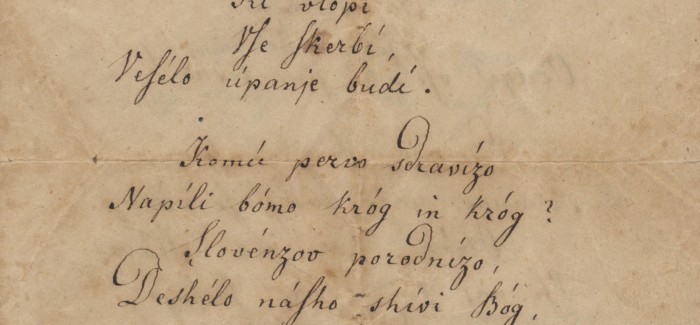 Ki vtopi
Vſe ſkerbí,
Veſélo úpanje budí.
Komú pervo sdravízo
Napíli bómo króg in króg?
Slovénzov porodnízo,
Deshélo náſho shívi Bóg,